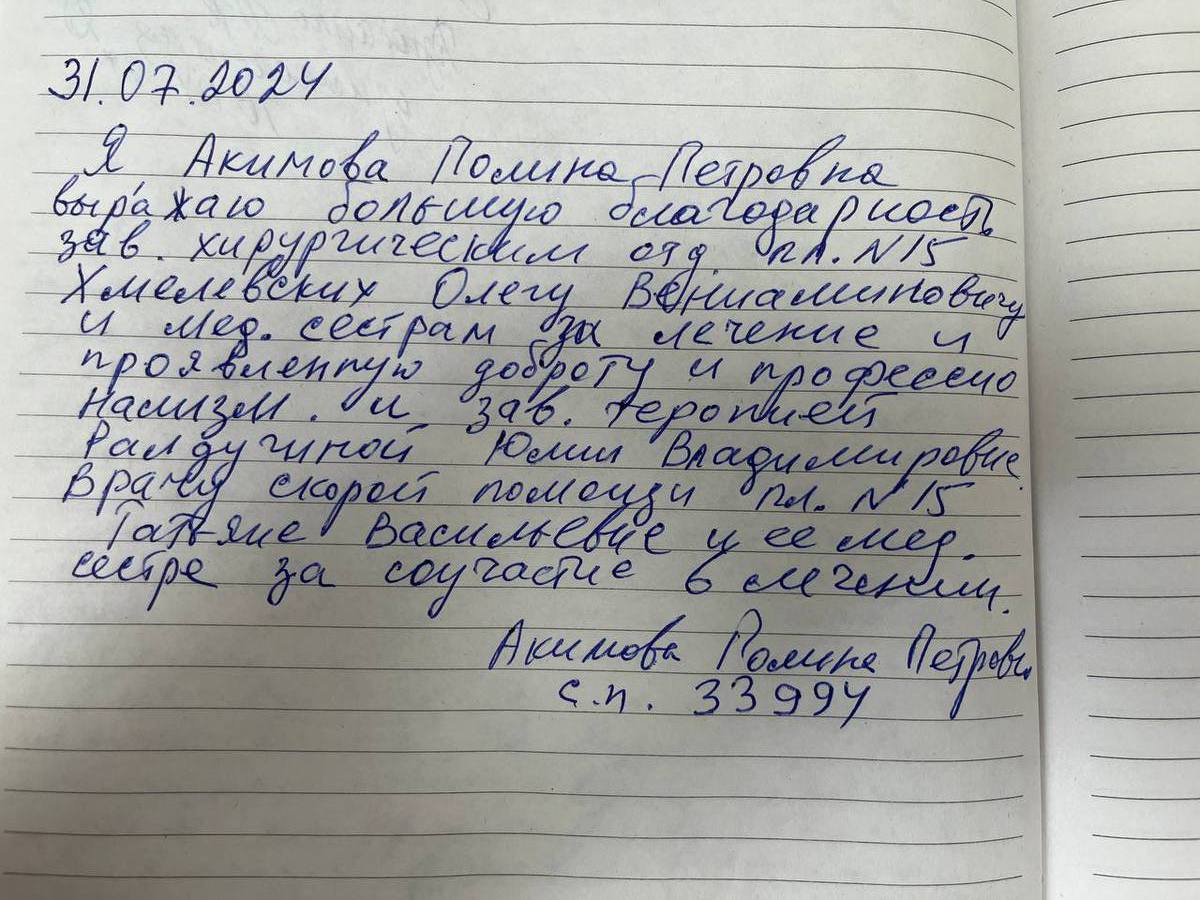 31.07.2024
Я Акимова Полина Петровна
выражаю большую благодарность
зав. хирургическим отд. пл. N15
Хмелевских Олегу Вениаминовичу
и мед. сестрам за лечение и
проявленную доброту и профессио
нализм. и зав. теропией
Ралдугиной Юлии Владимировне.
Врачу скорой помощи пл. N15
Татьяне Васильевне и ее мед.
сестре за соучастие в лечении.
Акимова Полина Петровн
с.п. 33994